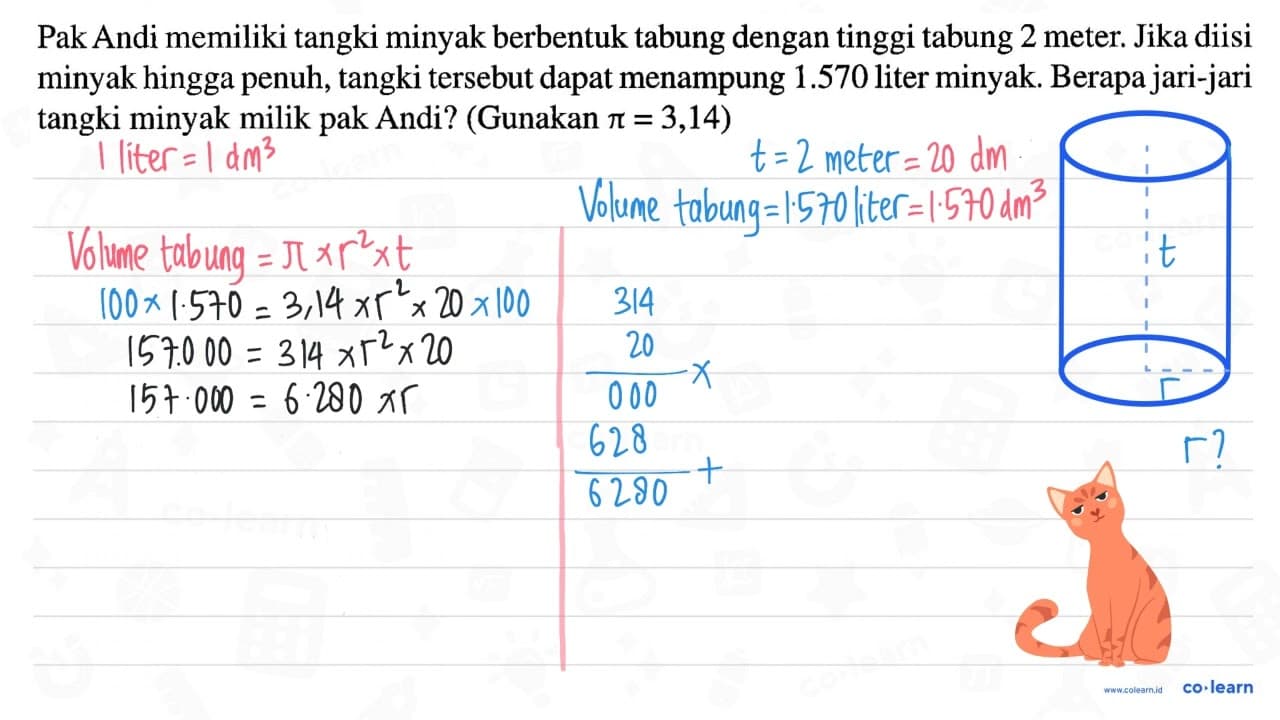 Pak Andi memiliki tangki minyak berbentuk tabung dengan tinggi tabung 2 meter. Jika diisi
minyak hingga penuh, tangki tersebut dapat menampung 1.570 liter minyak. Berapa jari-jari
tangki minyak milik pak Andi? (Gunakan π = 3,14)
1 liter = 1 dm³
t = 2 meter = 20 dm
Volume tabung = 1.570 liter = 1.570 dm³
Volume tabung = π × r² × t
100 × 1.570 = 3,14 × r² × 20 × 100
157.000 = 314 × r² × 20
157.000 = 6.280 × r
314
20
×
000
628
+
6280
t
r
r?
www.colearn.id co•learn